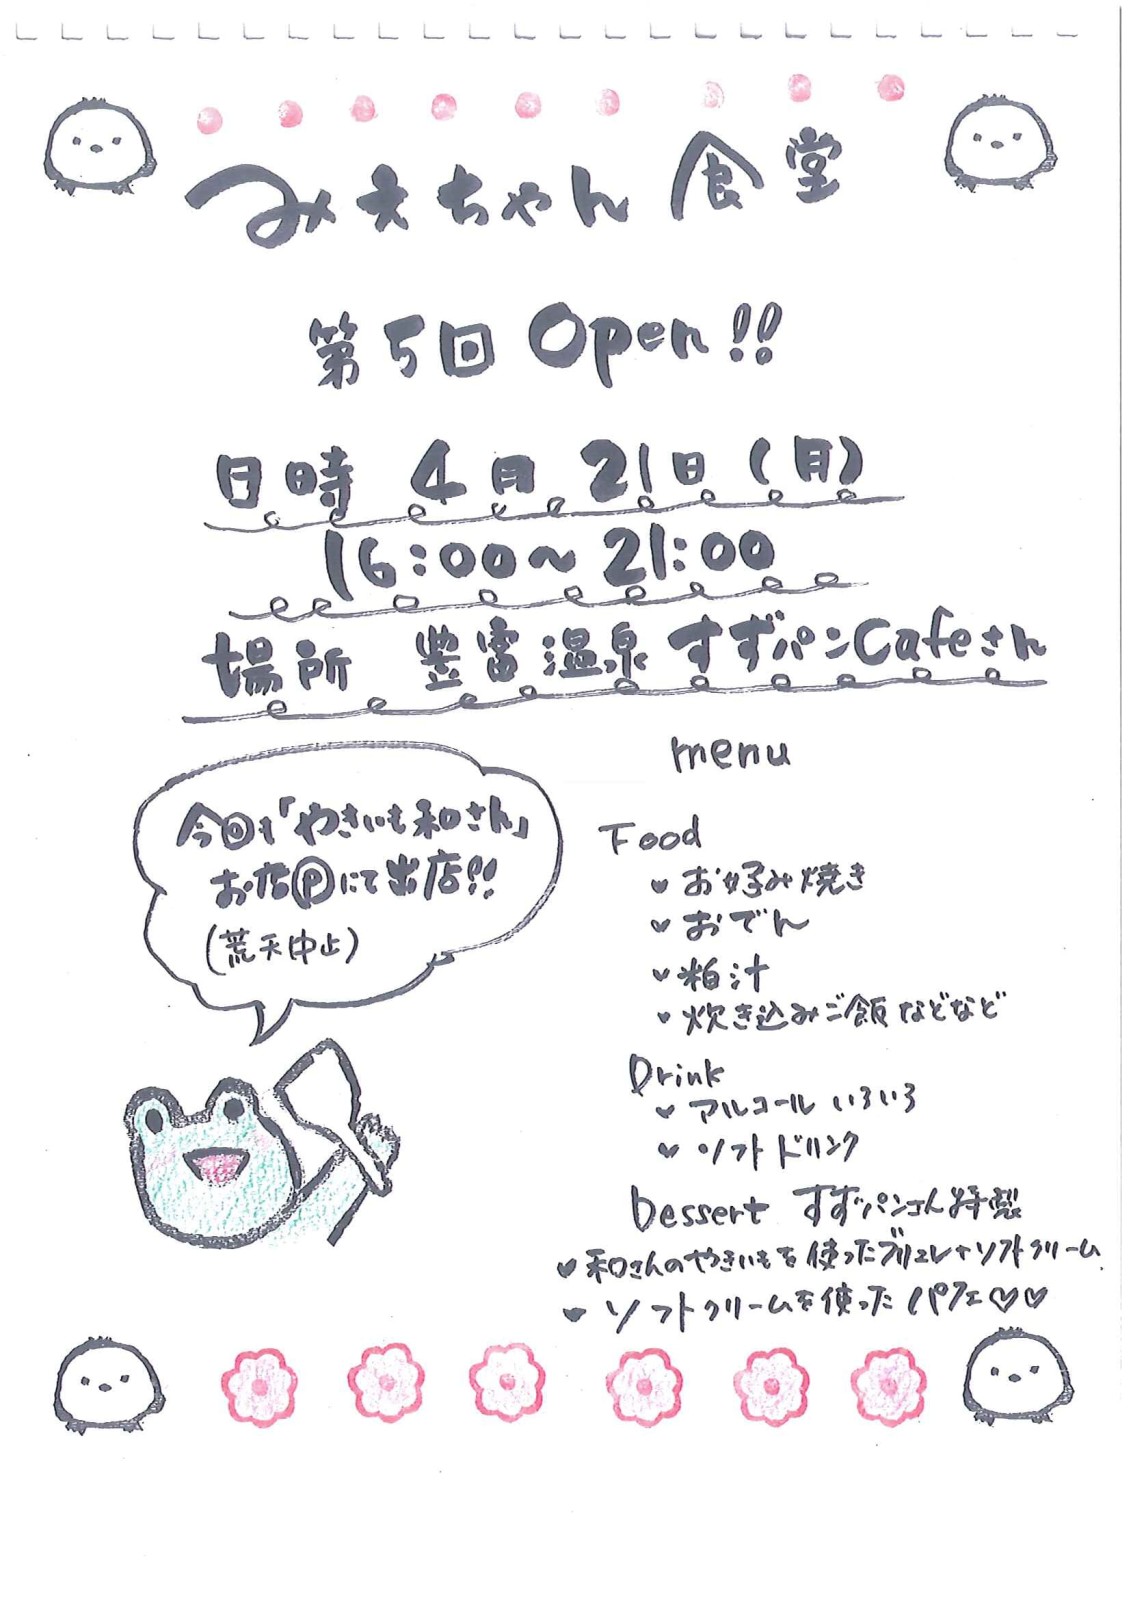 みえちゃん 食堂
第5回 Open!!
日時 4月 21日 (月)
16:00～21:00
場所 豊富温泉 すずパンCafeさん
今回も「やきいも和さん」
お店Ⓟにて出店!!
(荒天中止)
menu
Food
♥ お好み焼き
♥ おでん
♥ 粕汁
♥ 炊き込みご飯などなど
Drink
♥ アルコール いろいろ
♥ ソフトドリンク
Dessert すずパンさん特製
♥ 和さんのやきいもを使ったブリュレ+ソフトクリーム
♥ ソフトクリームを使ったパフェ♡♡